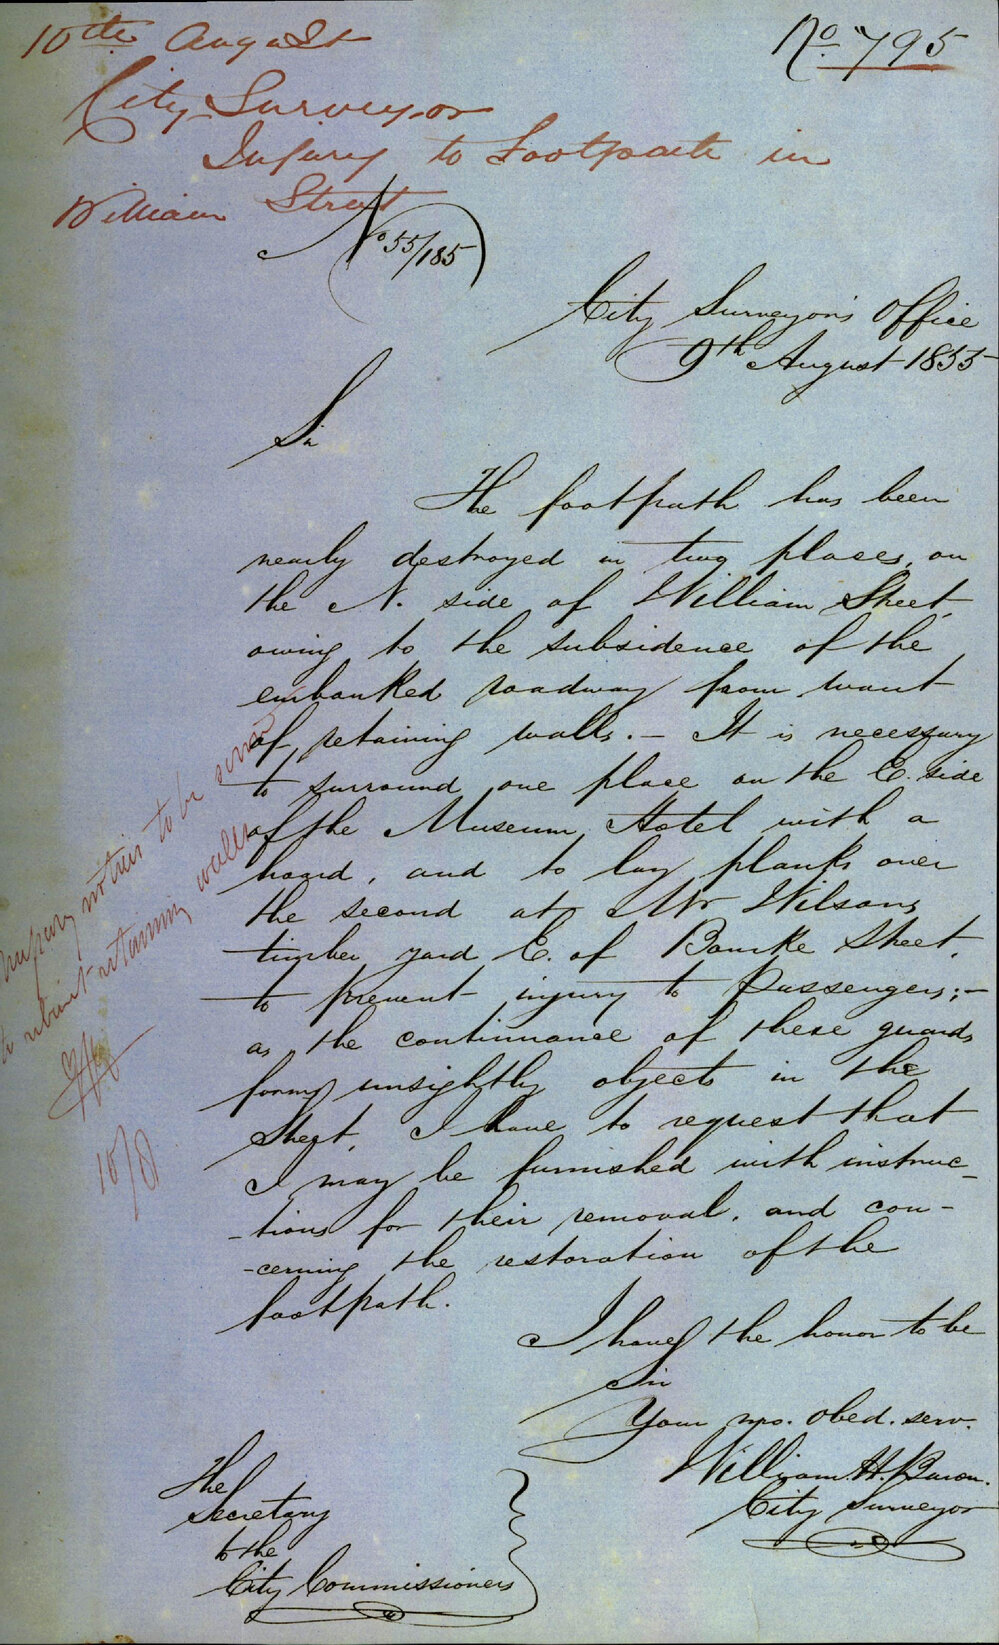 10th August
No. 795
City Surveyor
Injury to Footpath in
William Street
No 55/185
City Surveyor's Office
9th August 1855
Sir
The footpath has been
nearly destroyed in two places, on
the N. side of William Street,
owing to the subsidence of the
embanked roadway from want
of retaining walls. – It is necessary
to surround one place on the E. side
of the Museum Hotel with a
hoard, and to lay planks over
the second at Mr Wilsons
timber yard E. of Bourke Street,
to prevent injury to Passengers; –
as the continuance of these guards
forms unsightly objects in the
Street, I have to request that
I may be furnished with instruc-
-tions for their removal, and con-
-cerning the restoration of the
footpath.
I have the honor to be
Sir
Your mo. obed. serv.
William H. Baron.
City Surveyor
The
Secretary
to the
City Commissioners
notices to be
retaining walls
10/8